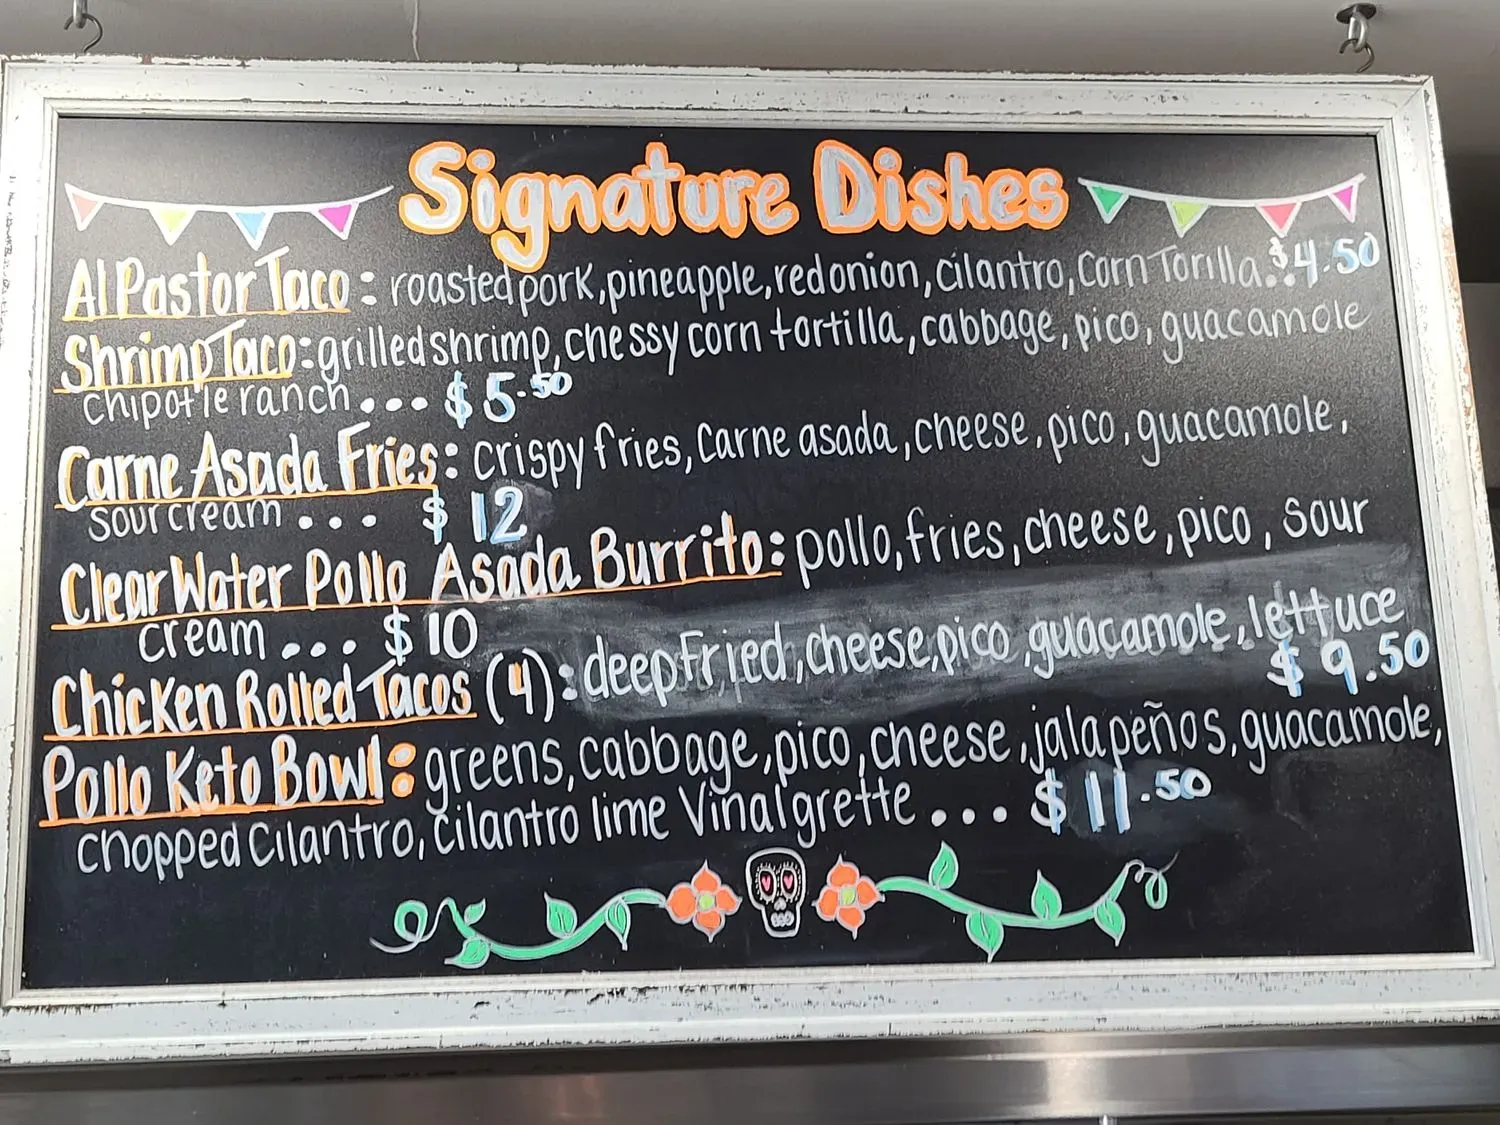 Signature Dishes
Al Pastor Taco: roasted pork, pineapple, red onion, cilantro, Corn Torilla..$4.50
Shrimp Taco: grilled shrimp, chessy corn tortilla, cabbage, pico, guacamole
chipotle ranch... $5.50
Carne Asada Fries: crispy fries, Carne asada, cheese, pico, guacamole,
sour cream ... $12
Clear Water Pollo Asada Burrito: pollo, fries, cheese, pico, sour
cream ... $10
Chicken Rolled Tacos (4): deep fried, cheese, pico, guacamole, lettuce
$9.50
Pollo Keto Bowl: greens, cabbage, pico, cheese, jalapeños, guacamole,
chopped Cilantro, cilantro lime Vinaigrette ... $11.50